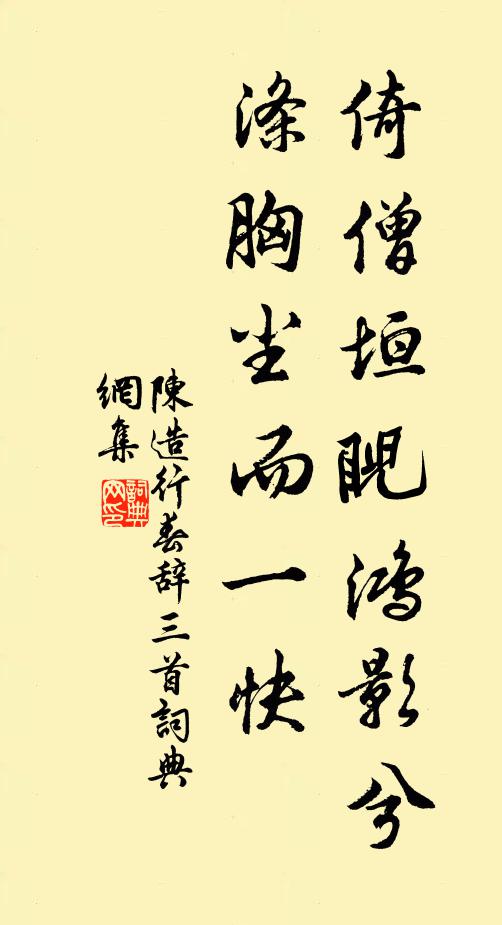 倚僧垣睨鴻影兮
滌胸尘而一快
陳造行春辞三首詞典
網集
詞典网印